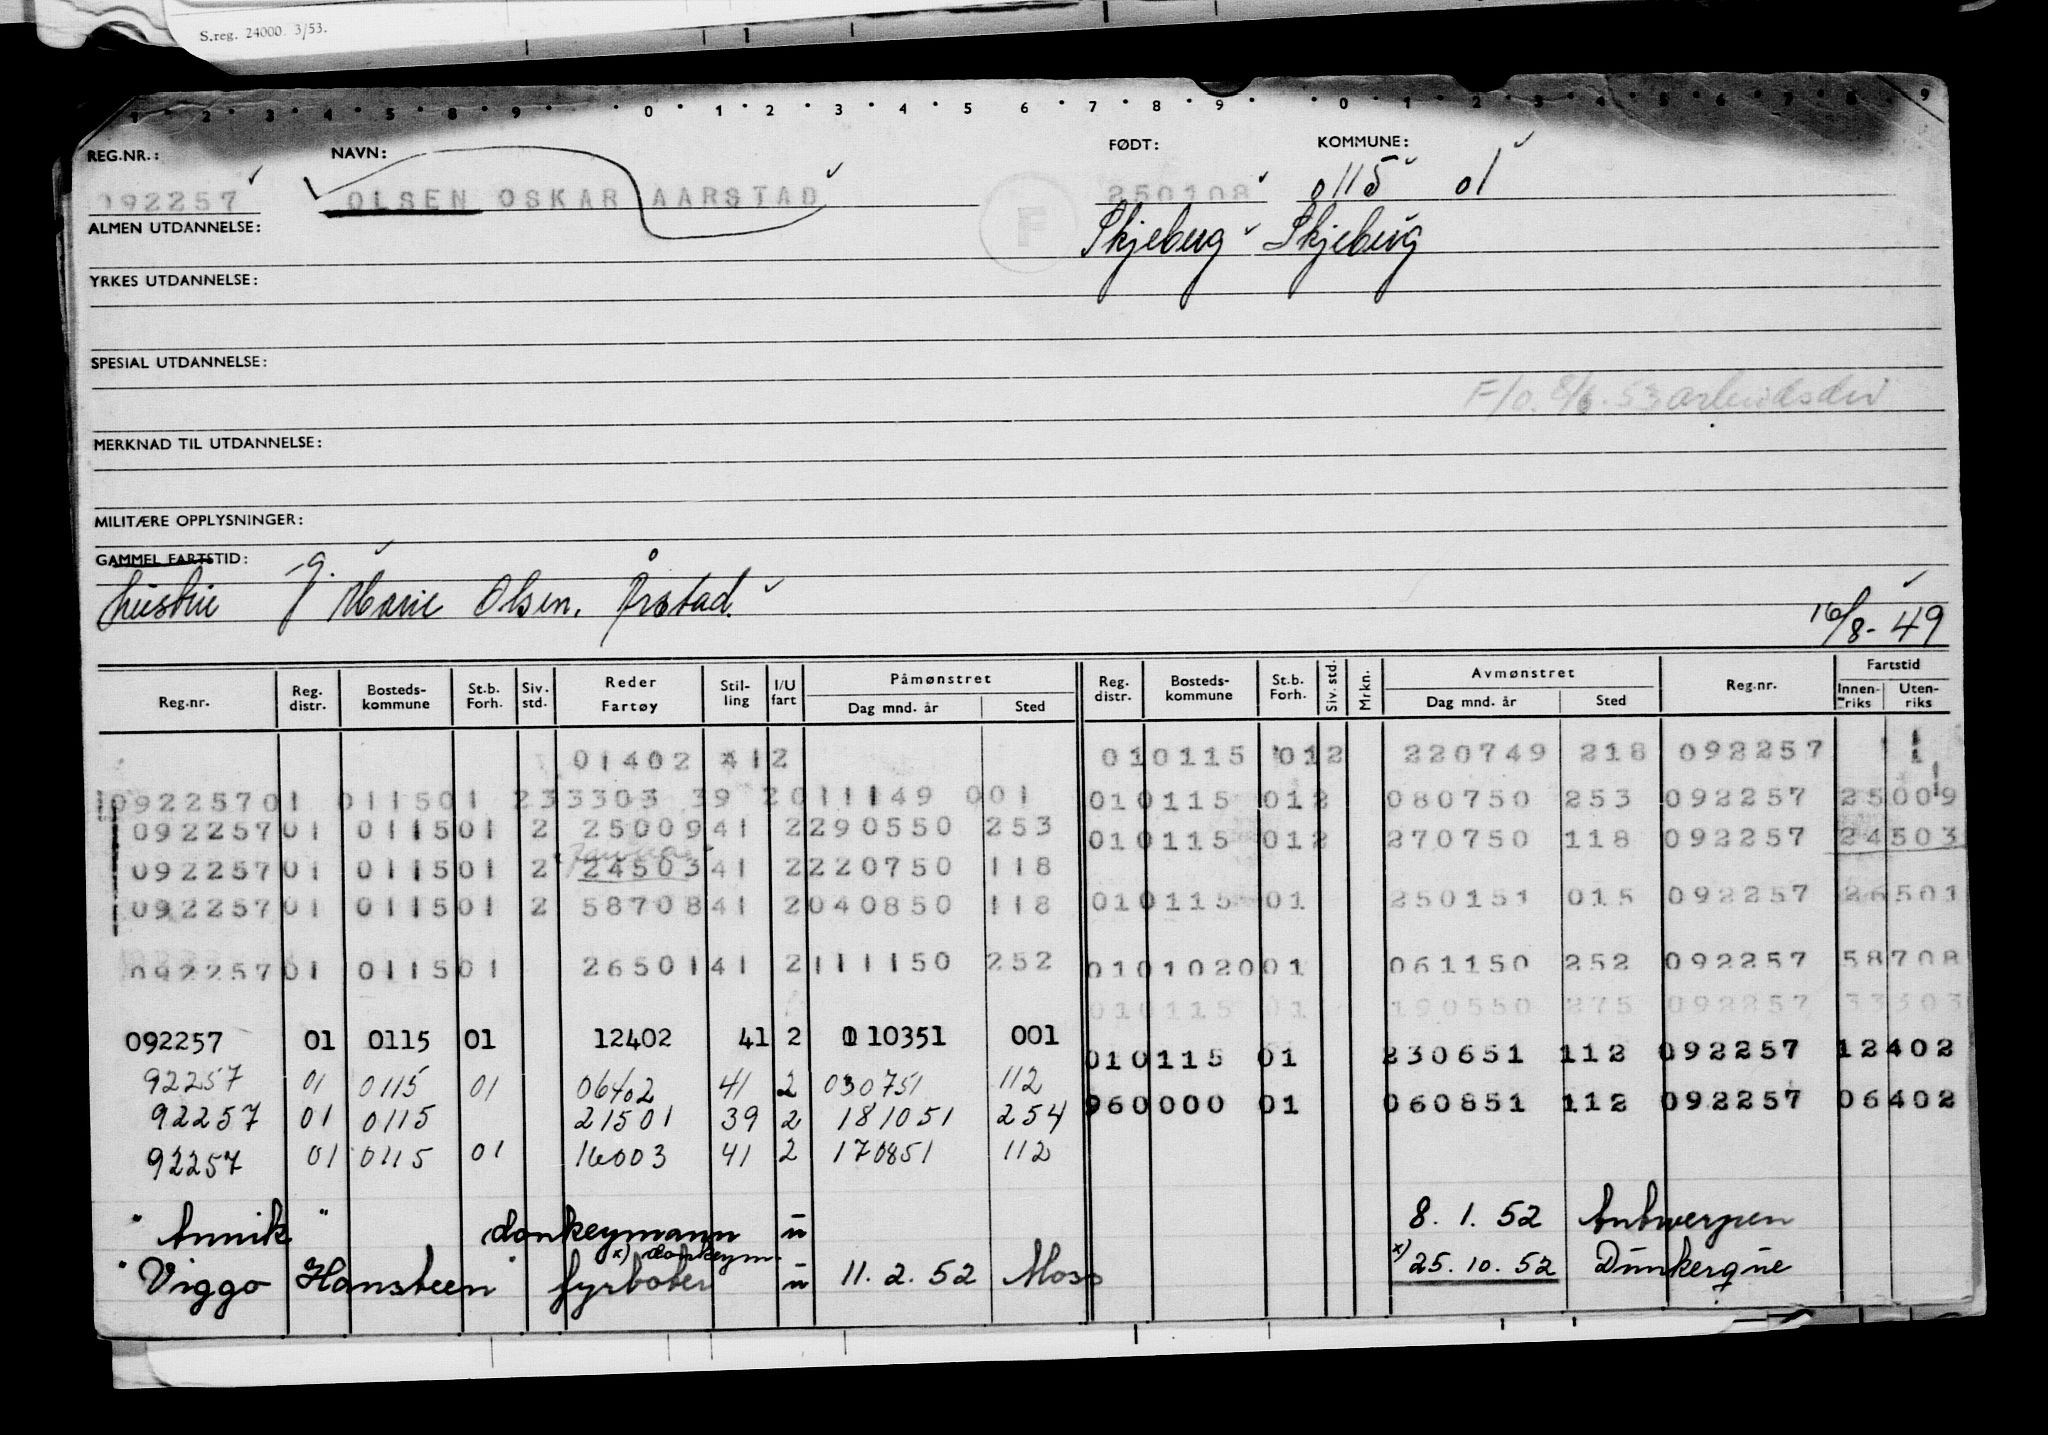 S.reg. 24000. 3/53.
1 · 2 · 3 · 4 · 5 · 8 · 9 · · 0 · 1 · 2 · 3 · 4 · 5 6 · 7 · 8 · 9 · · 0 · 1 · 2 · 3 · 4 · 5 · 6 · 7 · 8 · 9
REG.NR.: NAVN: FØDT: KOMMUNE:
092257 OLSEN OSKAR AARSTAD F 250108 0115 01
ALMEN UTDANNELSE: Skjeberg Skjeberg
YRKES UTDANNELSE:
SPESIAL UTDANNELSE:
F/o. 8/6. 53 arbeidsdir
MERKNAD TIL UTDANNELSE:
MILITÆRE OPPLYSNINGER:
GAMMEL FARTSTID:
hustru g. Marie Olsen, Årstad. 16/8-49
Reg.nr. Reg. distr. Bosteds-kommune St.b. Forh. Siv. std. Reder Fartøy Stil-ling I/U fart Påmønstret Dag mnd. år Sted Reg. distr. Bosteds-kommune St.b. Forh. Siv. std. Mrkn. Avmønstret Dag mnd. år Sted Reg.nr. Fartstid Innen-riks Uten-riks
01402 41 2 01 0115 01 2 220749 218 092257
092257 01 0115 01 2 33303 39 2 011149 001 01 0115 01 2 080750 253 092257 25009
092257 01 0115 01 2 25009 41 2 290550 253 01 0115 01 2 270750 118 092257 24503
092257 01 0115 01 2 24503 41 2 220750 118
092257 01 0115 01 2 58708 41 2 040850 118 01 0115 01 250151 015 092257 26501
092257 01 0115 01 26501 41 2 111150 252 01 01020 01 061150 252 092257 58708
01 0115 01 190550 275 092257 33303
092257 01 0115 01 12402 41 2 010351 001 01 0115 01 230651 112 092257 12402
92257 01 0115 01 06402 41 2 030751 112
92257 01 0115 21501 39 2 181051 254 960000 01 060851 112 092257 06402
92257 01 0115 01 16003 41 2 170851 112
"Annik" donkeymann u 8. 1. 52 Antwerpen
x) donkeym.
"Viggo Hansteen" fyrbøter u 11. 2. 52 Moss x) 25. 10. 52 Dunkerque